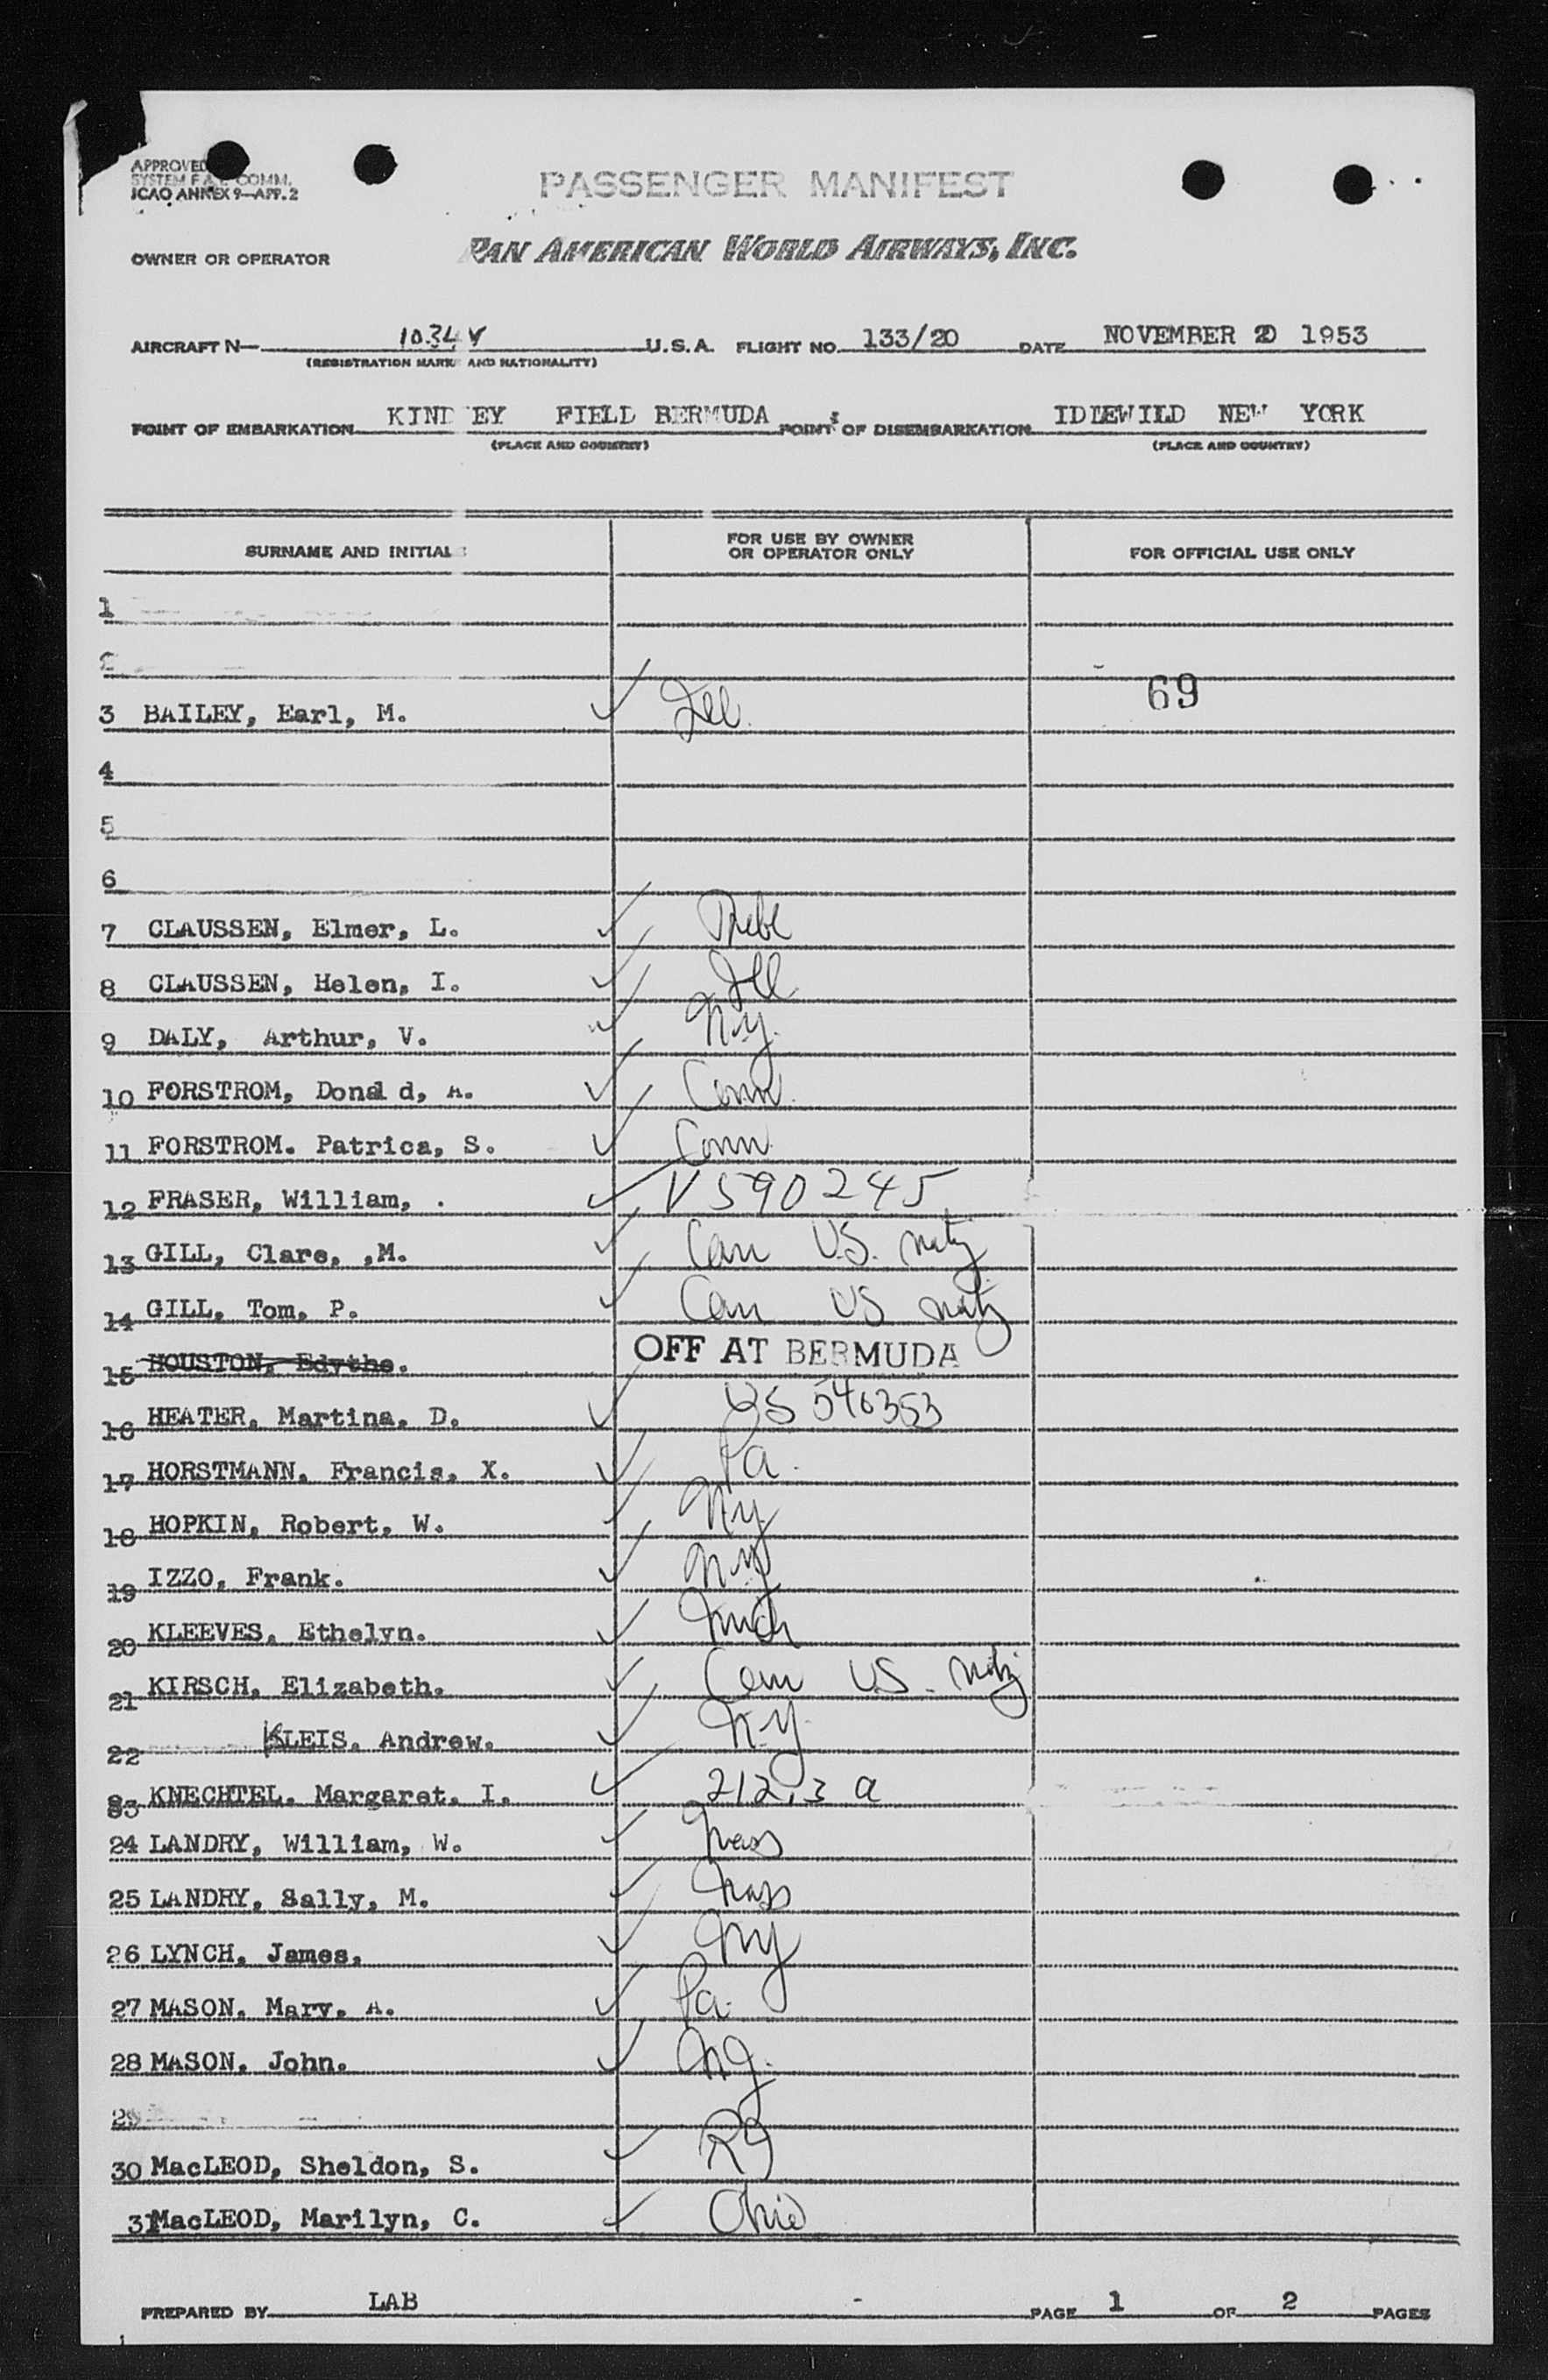 APPROVED
SYSTEM F.A.L. COMM.
ICAO ANNEX 9—APP. 2
PASSENGER MANIFEST
OWNER OR OPERATOR PAN AMERICAN WORLD AIRWAYS, INC.
AIRCRAFT N— 1034V U.S.A. FLIGHT NO. 133/20 DATE NOVEMBER 1953
(REGISTRATION MARK AND NATIONALITY)
POINT OF EMBARKATION KIND EY FIELD BERMUDA POINT OF DISEMBARKATION IDLEWILD NEW YORK
(PLACE AND COUNTRY) (PLACE AND COUNTRY)
SURNAME AND INITIALS FOR USE BY OWNER OR OPERATOR ONLY FOR OFFICIAL USE ONLY
1
2
3 BAILEY, Earl, M. ✓ Ill. 69
4
5
6
7 CLAUSSEN, Elmer, L. ✓ Nebr
8 CLAUSSEN, Helen, I. ✓ Ill
9 DALY, Arthur, V. ✓ N.Y.
10 FORSTROM, Donald, A. ✓ Conn.
11 FORSTROM. Patrica, S. ✓ Conn
12 FRASER, William, . ✓ V590245
13 GILL, Clare, ,M. ✓ Can U.S. natz
14 GILL, Tom, P. ✓ Can US natz
15 HOUSTON, Edythe. OFF AT BERMUDA
16 HEATER, Martina, D. ✓ 546353
17 HORSTMANN, Francis, X. ✓ Pa.
18 HOPKIN, Robert, W. ✓ NY
19 IZZO, Frank. ✓ NY
20 KLEEVES, Ethelyn. ✓ Mich
21 KIRSCH, Elizabeth. ✓ US. natz
22 KLEIS, Andrew. ✓ N.Y.
23 KNECHTEL, Margaret. I. ✓ 212.3 a
24 LANDRY, William, W. ✓ Mass
25 LANDRY, Sally, M. ✓ Mass
26 LYNCH, James, ✓ NY
27 MASON, Mary, A. ✓ Pa.
28 MASON, John. ✓ NJ.
29
30 MacLEOD, Sheldon, S. ✓ RI
31 MacLEOD, Marilyn, C. ✓ Ohio
PREPARED BY LAB PAGE 1 OF 2 PAGES